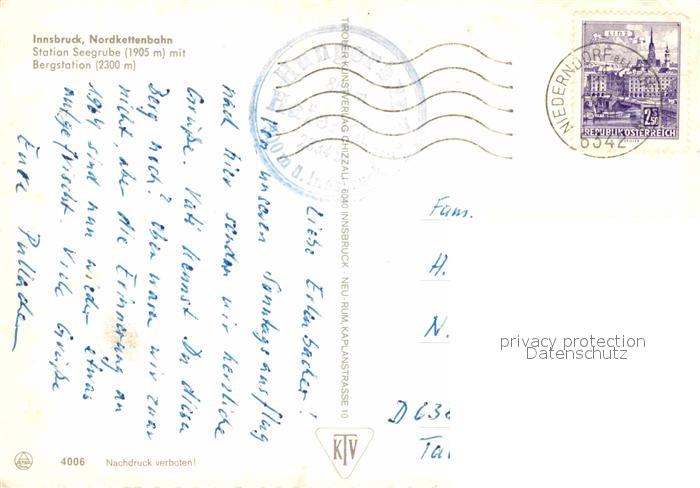 Innsbruck, Nordkettenbahn
Station Seegrube (1905 m) mit
Bergstation (2300 m)
Liebe Erlenbacher!
Von unserem Sonntagsausflug
nach hier senden wir herzliche
Grüße. Vati kennst Du diesen
Berg noch? Oben waren wir zwar
nicht, aber die Erinnerung an
sind nun wieder etwas
aufgefrischt. Viele Grüße
Eure
TIROLER KUNSTVERLAG CHIZZALI · 6040 INNSBRUCK NEU-RUM, KAPLANSTRASSE 10
KTV
LINZ
2.50
REPUBLIK ÖSTERREICH
NIEDERNDORF
6342
Fam.
H.
N.
D 638
privacy protection
Datenschutz
4006 Nachdruck verboten!